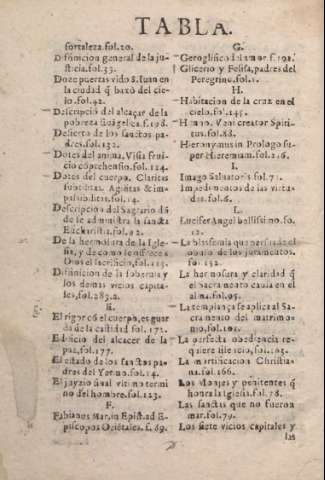 TABLA.
fortaleza. fol. 20.
Difinicion general de la ju-
sticia. fol. 33.
Doze puertas vido S. Iuan en
la ciudad q̃ baxó del cie-
lo. fol. 42.
Descripció del alcaçar de la
pobreza Euãgelica. f. 198.
Desierto de los sanctos pa-
dres. fol. 132.
Dotes del anima, Visiõ frui-
ció cõprehensiõ. fol. 124.
Dotes del cuerpo, Claritas
subtilitas. Agilitas & im-
passibilitas. fol. 14.
Descripcion del Sagrario dõ
de le administra la sancta
Eucharistia. fol. 92.
De la hermosura de la Igle-
sia, y de como se offrece a
Dios el sacrificio, fol. 113.
Difinicion de la soberuia y
los demas vicios capita-
les, fol. 283. 2.
E.
El rigor có el cuerpo, es guar
da de la castidad fol. 172.
Edificio del alcacer de la
paz, fol. 177.
El estado de los sanctos pa-
dres del Yermo. fol. 14.
El juyzio final vltimo termi
no del hombre. fol. 123.
F.
Fabianus Mar. in Epist. ad E-
piscopos Oriẽtales. f. 89.
G.
Geroglifico del amor f. 192.
Glicerio y Felisa, padres del
Peregrino. fol. 1.
H.
Habitacion de la cruz en el
cielo. fol. 145.
Himno. Veni creator Spiri-
tus. fol. 88.
Hieronymus in Prologo su-
per Hieremiam. fol. 216.
I.
Imago Saluatoris fol. 71.
Impedimentos de las virtu-
des. fol. 6.
L.
Lucifer Angel bellissimo. fo.
12.
La blasfemia que persuade el
odio de los juramentos.
fo. 152.
La hermosura y claridad q̃
el sacramento causa en el
alma. fol. 95.
La templança se aplica al Sa
cramento del matrimo-
nio, fol. 101.
La perfecta obediencia re-
quiere silencio, fol. 103.
La mortificacion Christia-
na. fol. 166.
Los Monjes y penitentes q̃
honra la Iglesia. fol. 78.
Las sanctas que no fueron
mar. fol. 79.
Los siete vicios capitales y
sus